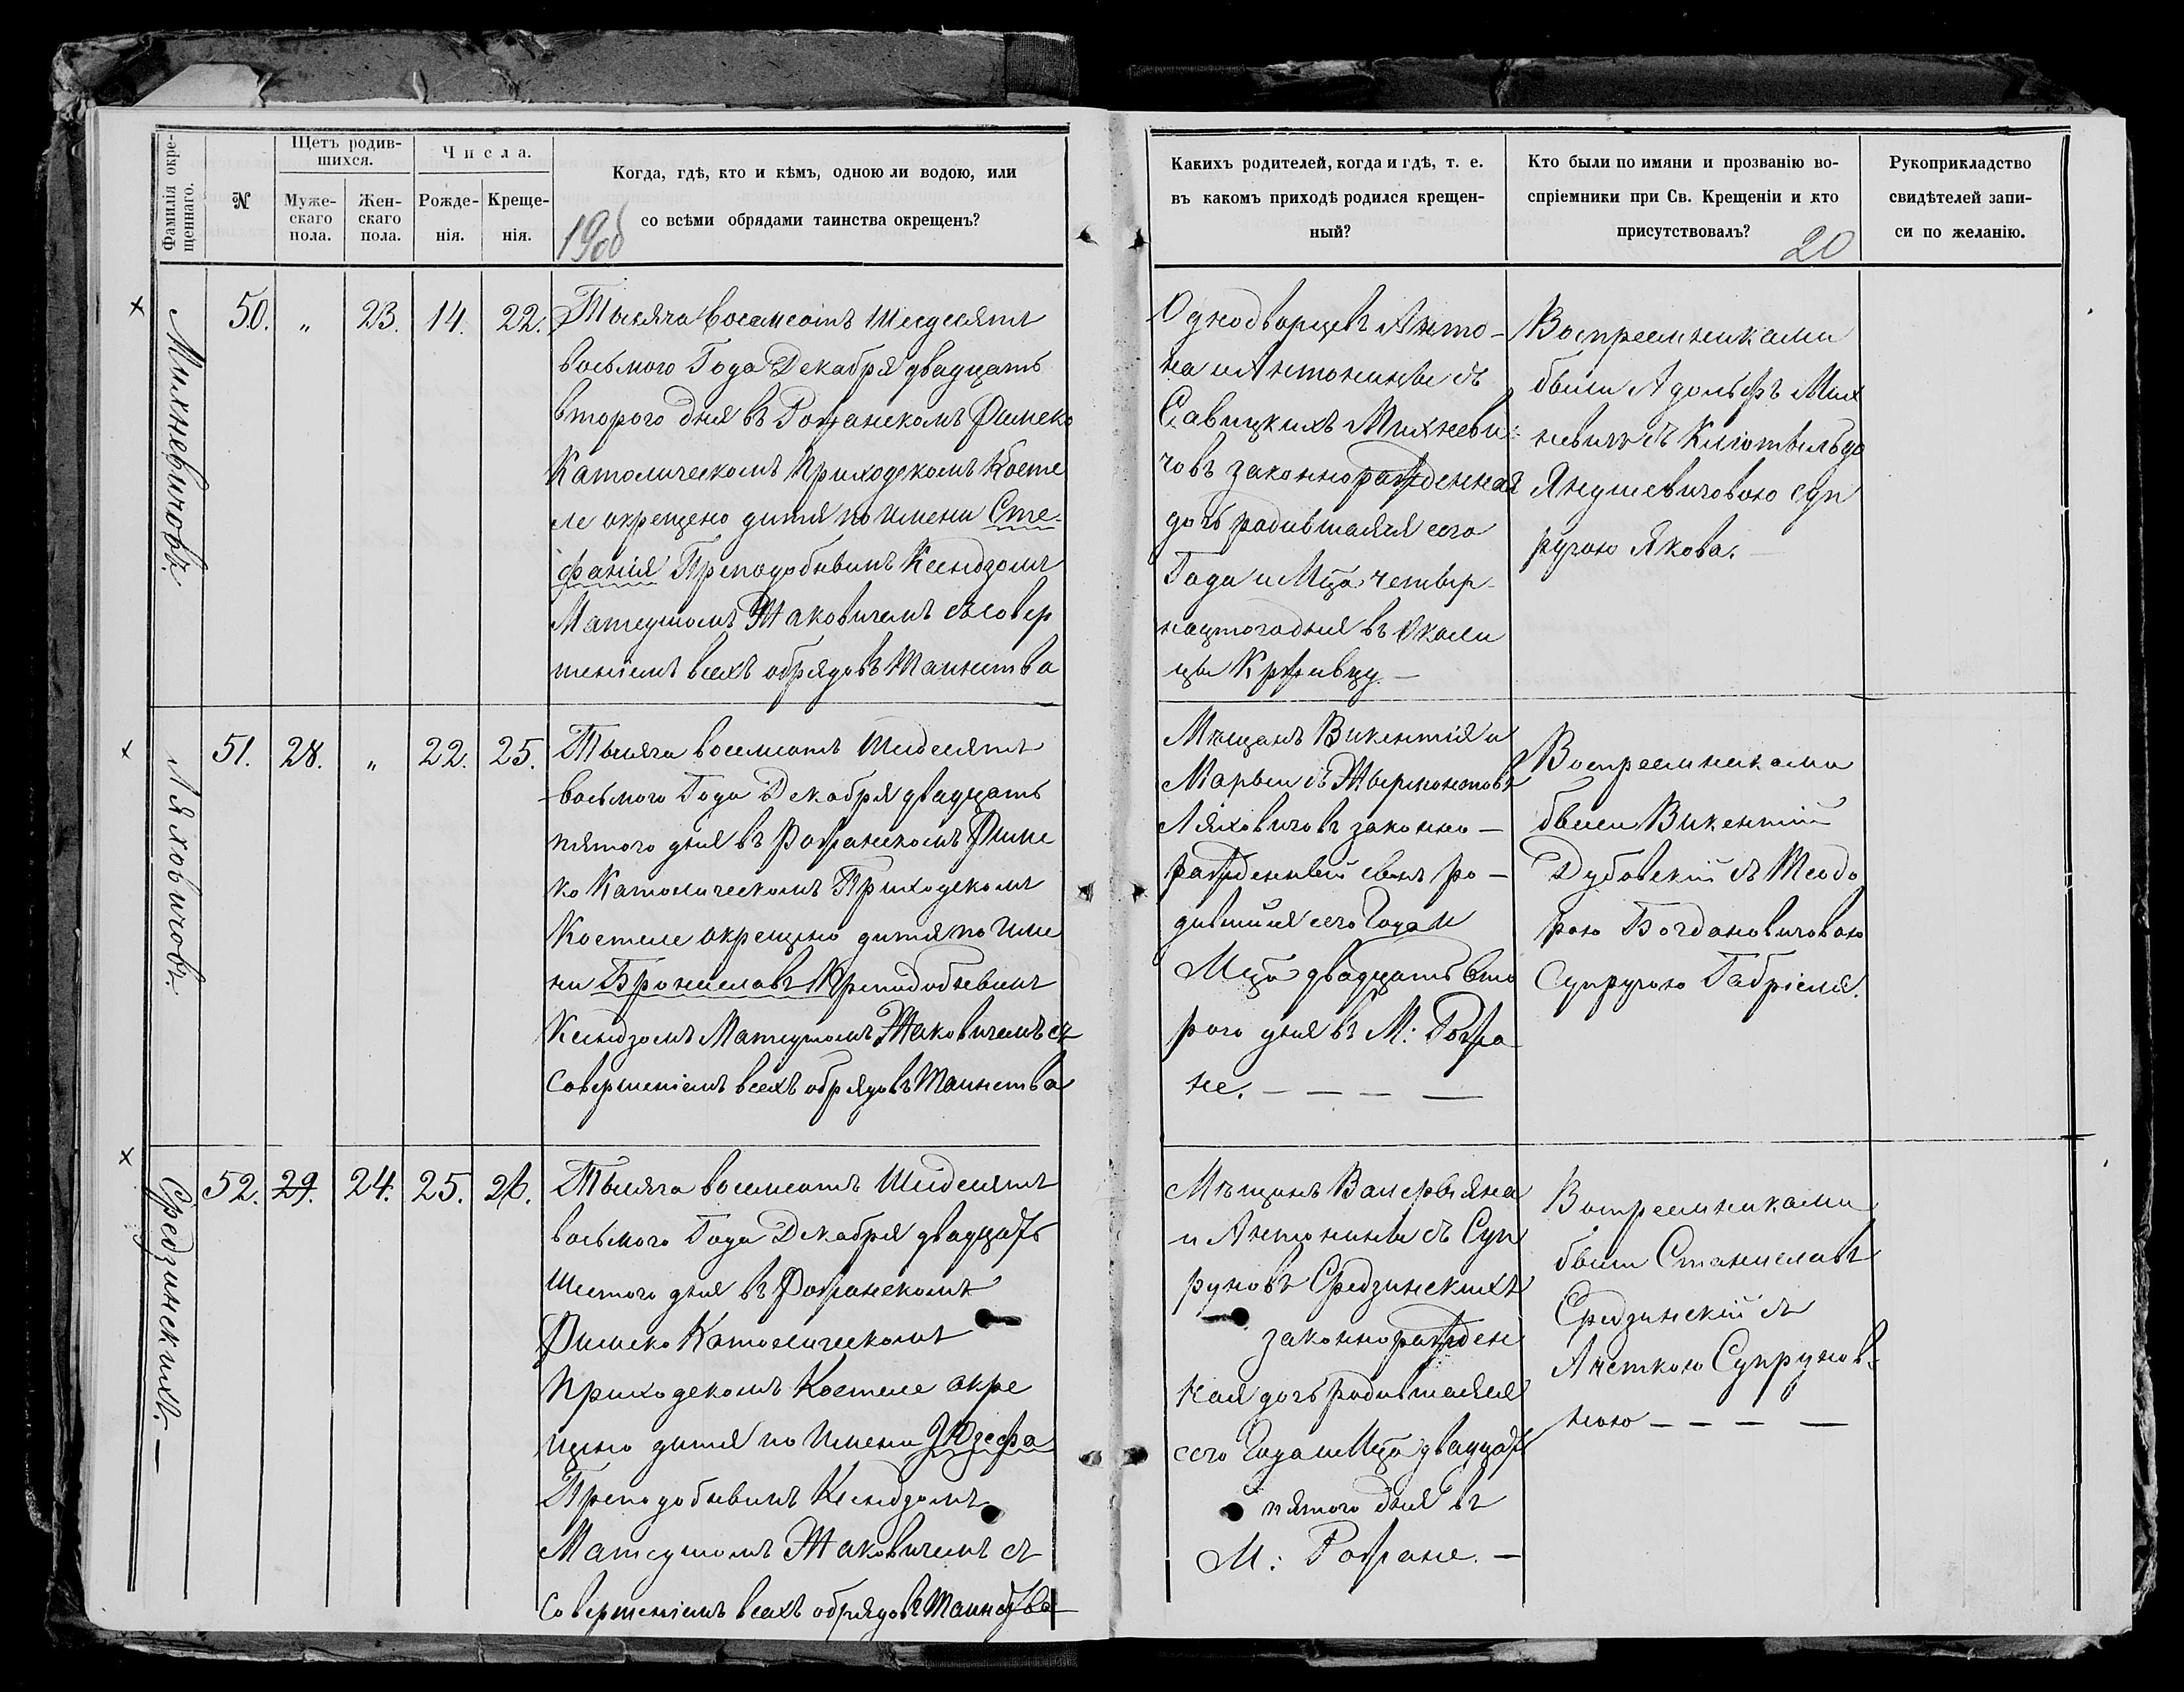 Фамилія окре-
щеннаго.
№
Щетъ родив-
шихся.
Муже-
скаго
пола.
Жен-
скаго
пола.
Числа.
Рожде-
нія.
Креще-
нія.
Когда, гдѣ, кто и кѣмъ, одною ли водою, или
со всѣми обрядами таинства окрещенъ?
Какихъ родителей, когда и гдѣ, т. е.
въ какомъ приходѣ родился крещен-
ный?
Кто были по имяни и прозванію во-
спріемники при Св. Крещеніи и кто
присутствовалъ?
20
Рукоприкладство
свидѣтелей запи-
си по желанію.
Михневичовъ.
50. „ 23. 14. 22.
Тысяча восемсотъ Шесдесятъ
восьмого Года Декабря двадцать
второго дня въ Рожанскомъ Римско
Католическомъ Приходскомъ Косте
ле окрещено дитя по имени Сте-
фанія Преподобнымъ Ксендзомъ
Матеушомъ Жаковичемъ съ совер
шеніемъ всехъ обрядовъ Таинства
Однодворцевъ Анто-
на и Антонины съ
Савицкихъ Михневи-
човъ законнорожденная
дочь родившаяся сего
Года и Мца четыр-
нацтого дня въ Околи
цы
Воспреемниками
были Адольфъ Мих
невичъ съ Клотыльдо
Янушевичовою суп
ругою Якова.
Ляховичовъ.
51. 28. „ 22. 25.
Тысяча восемсотъ Шесдесятъ
восьмого Года Декабря двадцать
пятого дня въ Рожанскомъ Римс
ко Католическомъ Приходскомъ
Костеле окрещено дитя по име
ни Брониславъ Преподобнымъ
Ксендзомъ Матеушомъ Жаковичемъ съ
Совершеніемъ всехъ обрядовъ Таинства
Мѣщанъ Викентія и
Марыи съ
Ляховичовъ законно —
рожденный сынъ ро —
дившійся сего Года и
Мца двадцать вто
рого дня въ М: Рожа
не. — — — —
Воспреемниками
были Викентій
Дубовскій съ Теодо
рою Богдановичовою
Супругою Габріеля.
Средзинскихъ. —
52. 29. 24. 25. 26.
Тысяча восемсотъ Шесдесятъ
восьмого Года Декабря двадцать
Шестого дня въ Рожанскомъ
Римско Католическомъ
Приходскомъ Костеле окре
щено дитя по Имени Юзефа
Преподобнымъ Ксендзомъ
Матеушомъ Жаковичемъ съ
Совершеніемъ всехъ обрядовъ Таинства
Мѣщанъ Валерьяна
и Антонины съ Суп
руновъ Средзинскихъ
законнорожден
ная дочь родившаяся
сего Года и Мца двадцать
пятого дня въ
М: Рожане. —
Воспреемниками
были Станиславъ
Средзинскій съ
Анеткою Супрунов-
ною — — — —